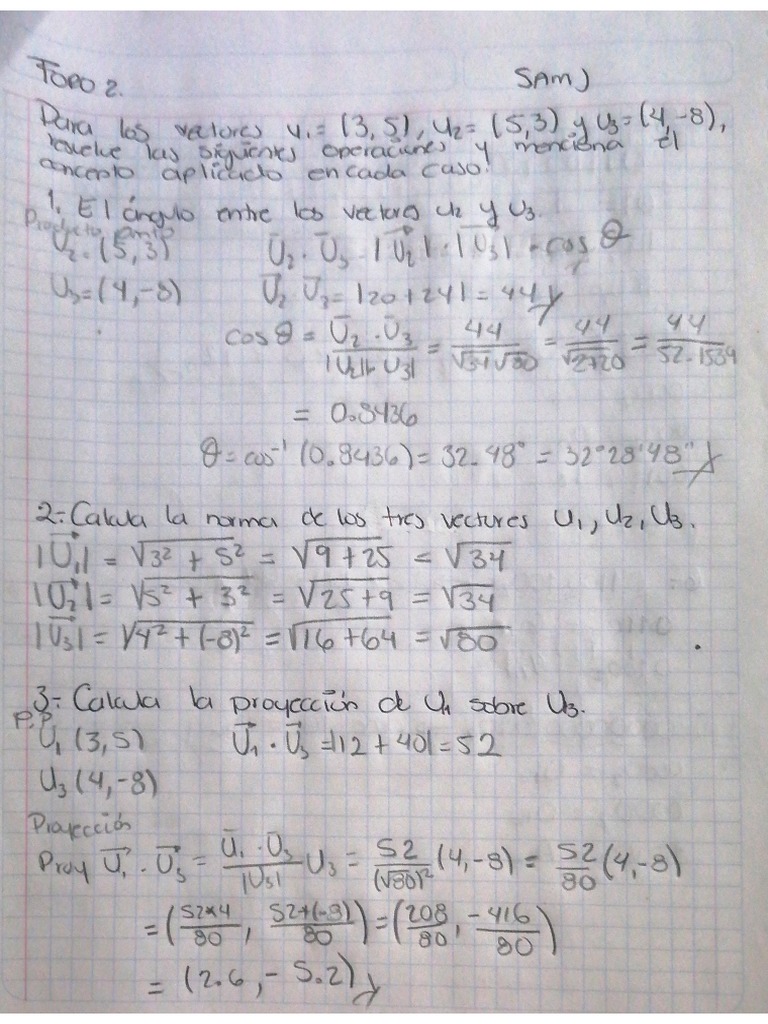 TOPO 2. SAMJ
Para los vectores u₁ = (3, 5), u₂ = (5,3) y u₃ = (4,-8),
resuelve las siguientes operaciones y menciona el
concepto aplicado en cada caso:
1. El ángulo entre los vectores u₂ y u₃.
Producto punto
U₂ = (5,3) U₂ · U₃ = |U₂| · |U₃| · cos θ
U₃ = (4,-8) U₂ · U₃ = |20+24| = 44
cos θ = U₂ · U₃ / |U₂| · |U₃| = 44 / √34 √80 = 44 / √2720 = 44 / 52.1534
= 0.8436
θ = cos⁻¹ (0.8436) = 32.48° = 32°28'48"
2.- Calcula la norma de los tres vectores U₁, U₂, U₃.
|U₁| = √3² + 5² = √9+25 = √34
|U₂| = √5² + 3² = √25+9 = √34
|U₃| = √4² + (-8)² = √16+64 = √80
3.- Calcula la proyección de U₁ sobre U₃.
P.P
U₁ (3,5) U₁ · U₃ = |12 + 40| = 52
U₃ (4,-8)
Proyección
Proy U₁ · U₃ = U₁ · U₃ / |U₃| U₃ = 52 / (√80)² (4,-8) = 52/80 (4,-8)
= (52*4 / 80, 52*(-8) / 80) = (208/80, -416/80)
= (2.6, -5.2)